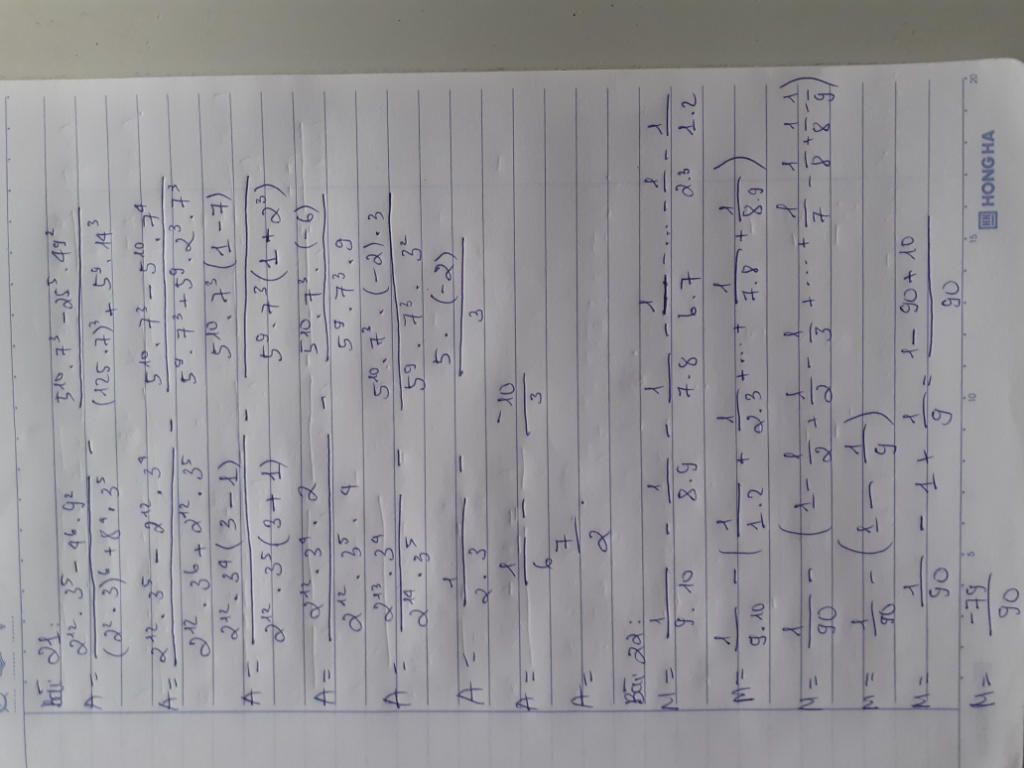 Bài 21:
A = (2¹² . 3⁵ - 4⁶ . 9²) / ((2² . 3)⁶ + 8⁴ . 3⁵) - (5¹⁰ . 7³ - 25⁵ . 49²) / ((125 . 7)³ + 5⁹ . 14³)
A = (2¹² . 3⁵ - 2¹² . 3⁴) / (2¹² . 3⁶ + 2¹² . 3⁵) - (5¹⁰ . 7³ - 5¹⁰ . 7⁴) / (5⁹ . 7³ + 5⁹ . 2³ . 7³)
A = (2¹² . 3⁴ (3 - 1)) / (2¹² . 3⁵ (3 + 1)) - (5¹⁰ . 7³ (1 - 7)) / (5⁹ . 7³ (1 + 2³))
A = (2¹² . 3⁴ . 2) / (2¹² . 3⁵ . 4) - (5¹⁰ . 7³ . (-6)) / (5⁹ . 7³ . 9)
A = (2¹³ . 3⁴) / (2¹⁴ . 3⁵) - (5¹⁰ . 7³ . (-2) . 3) / (5⁹ . 7³ . 3²)
A = 1 / (2 . 3) - (5 . (-2)) / 3
A = 1/6 - -10/3
A = 7/2 .
Bài 22:
M = 1/(9 . 10) - 1/(8.9) - 1/(7.8) - 1/(6.7) - ... - 1/(2.3) - 1/(1.2)
M = 1/(9.10) - (1/(1.2) + 1/(2.3) + ... + 1/(7.8) + 1/(8.9))
M = 1/90 - (1 - 1/2 + 1/2 - 1/3 + ... + 1/7 - 1/8 + 1/8 - 1/9)
M = 1/90 - (1 - 1/9)
M = 1/90 - 1 + 1/9 = (1 - 90 + 10)/90
M = -79/90
HONG HA
5 10 15 20